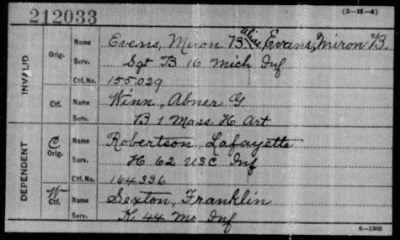 212033 (3-21-4)
INVALID
DEPENDENT
Orig. Name Evens, Miron B. alias Evans, Miron B.
Serv. Sgt B 16 Mich Inf
Ctf. No. 155,029
Ctf. Name Winn, Abner G.
Serv. B 1 Mass H Art
C Orig. Name Robertson, Lafayette
Serv. H 62 USC Inf
Ctf. No. 164336
W Ctf. Name Sexton, Franklin
Serv. K 44 Mo Inf
6-1303